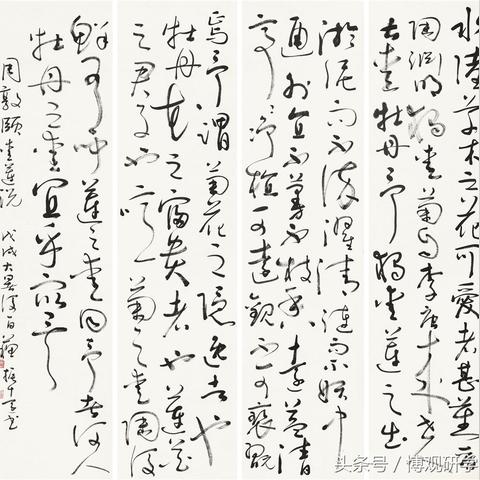 水陸草木之花可愛者甚蕃晉
陶淵明獨愛菊自李唐來世
甚愛牡丹予獨愛蓮之出
淤泥而不染濯清漣而不妖中
通外直不蔓不枝香遠益清
亭亭淨植可遠觀而不可褻翫
焉予謂菊花之隱逸者也
牡丹花之富貴者也蓮花
之君子也噫菊之愛陶後
鮮有聞蓮之愛同予者何人
牡丹之愛宜乎眾矣
周敦頤愛蓮說 戊戌大暑後一日蘇
头条号 / 博观研学